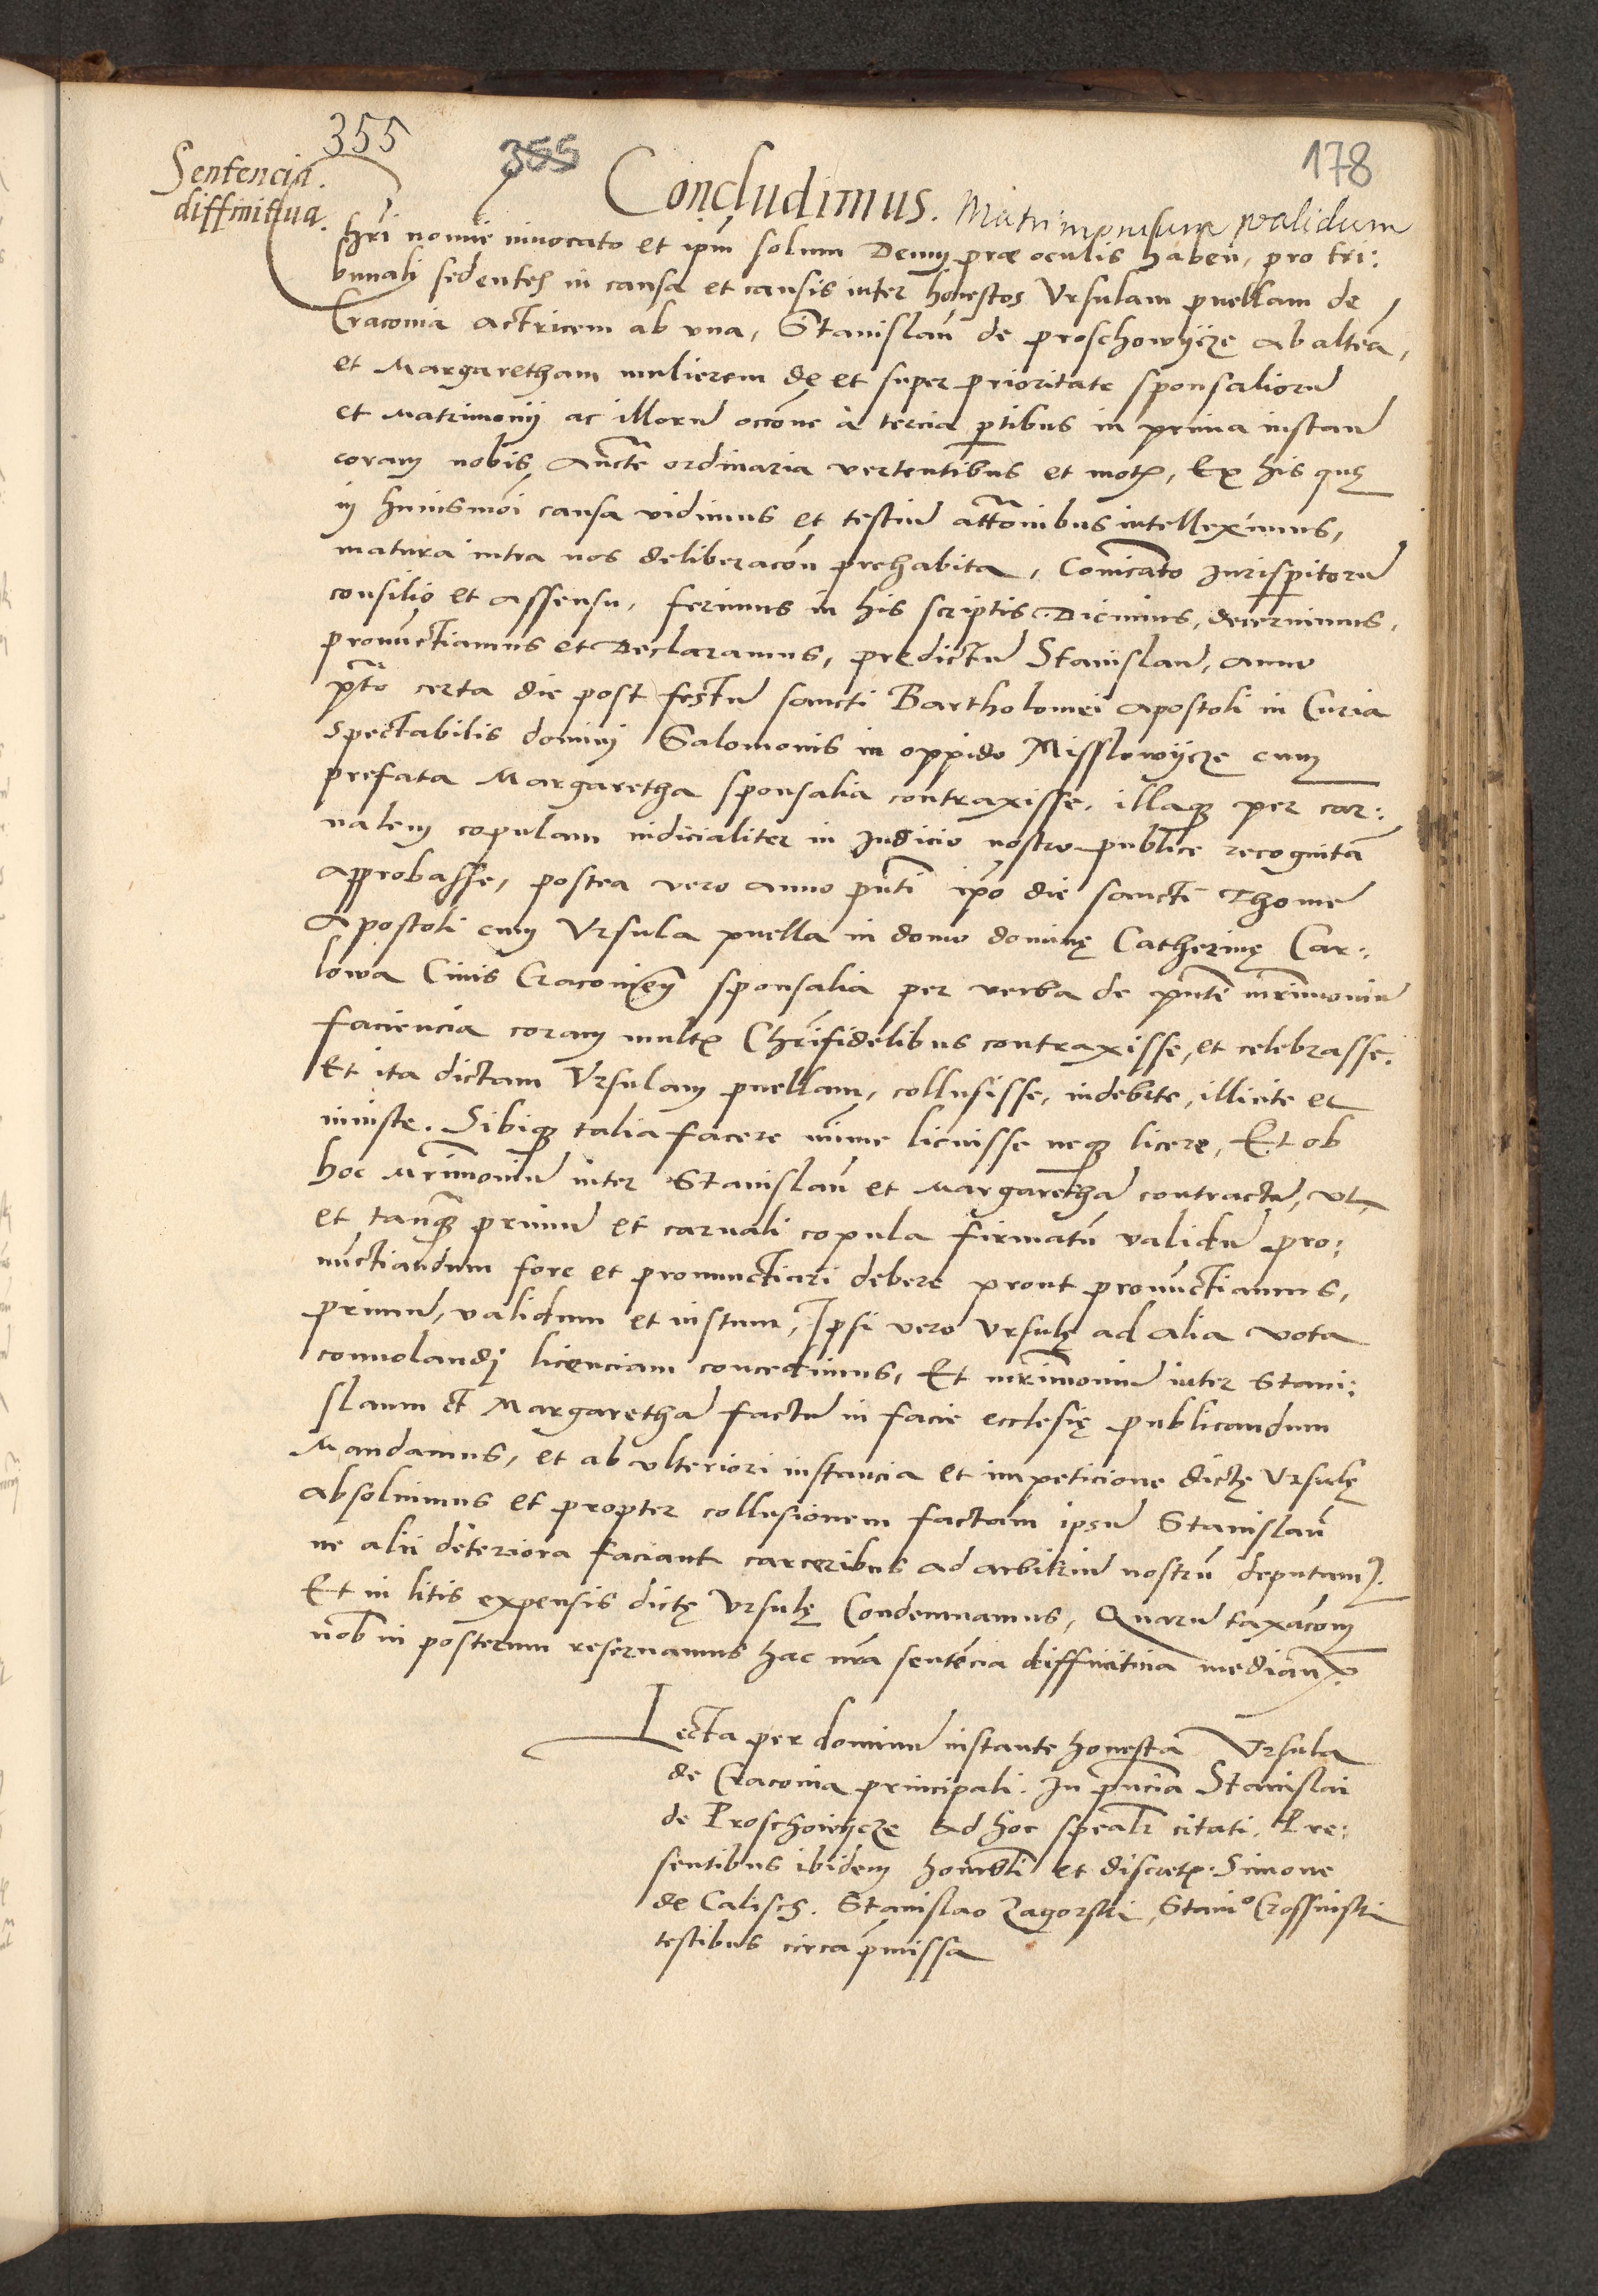 355
355
178
Sentencia
diffinitiua.
Concludimus. Matrimonium validum
Chri nomine inuocato et ipm solum Deum prae oculis haben, pro tri:
bunali sedentes in causa et causis inter honestos Vrsulam puellam de
Cracouia actricem ab vna, Stanislau de proschowijcze ab altera,
et Margaretham mulierem de et super prioritate sponsalioru
et Matrimonij ac illoru occone a tercia ptibus in prima instan
coram nobis aucte ordinaria vertentibus et motis, Ex his que
in huiusmoi causa vidimus et testiu attonibus intelleximus,
matura intra nos deliberacon prehabita, Comicato Jurisperitoru
consilio et assensu, ferimus in his scriptis Dicimus, decernimus,
pronuctiamus et Declaramus, predictu Stanislau, anno
pto certa die post festu sancti Bartholomei apostoli in Curia
spectabilis domini Salomonis in oppido Misslowijcze cum
prefata Margaretha sponsalia contraxisse, illaque per car:
nalem copulam iudicialiter in Judicio nostro publice recognita
approbasse, postea vero anno pnti ipo die sancti Thome
Apostoli cum Vrsula puella in domo domine Catherine Car:
lowa Ciuis Cracouien sponsalia per verba de pnti mrimoniu
faciencia coram multis Chrifidelibus contraxisse, et celebrasse.
Et ita dictam Vrsulam puellam, collusisse, indebite, illicite et
iniuste. Sibique talia facere mime licuisse neque licere, Et ob
hoc Mrimoniu inter Stanislau et Margaretha contractu, vt
et tanque primu et carnali copula firmatu validu pro:
nuctiandum fore et pronunctiari debere prout pronuctiamus,
primu, validum et iustum, Ipsi vero Vrsule ad alia vota
conuolandi licenciam concedimus, Et mrimoniu inter Stani:
slaum et Margaretha factu in facie ecclesie publicandum
Mandamus, et ab vlteriori instancia et impeticione dicte Vrsule
absoluimus et propter collusionem factam ipsu Stanislau
ne alii deteriora faciant carceribus ad arbitriu nostru deputam.
Et in litis expensis dicte Vrsule Condemnamus, Quaru taxacom
nob in posterum reseruamus hac nra sentencia diffinitiua median.
Lecta per dominu instante honesta Vrsula
de Cracouia principali. In pncia Stanislai
de Proschowijcze ad hoc spealr citati. Pre:
sentibus ibidem honorabli et discretis Simone
de Calisch. Stanislao Zagorski, Stanio Crossinski
testibus circa pmissa